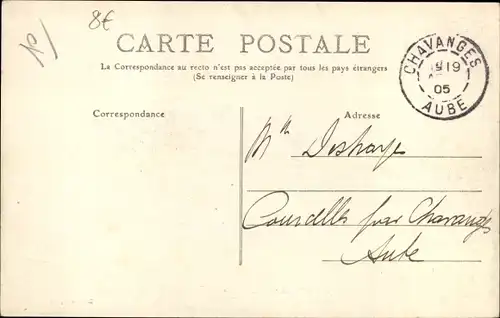 8€
CARTE POSTALE
La Correspondance au recto n'est pas acceptée par tous les pays étrangers
(Se renseigner à la Poste)
CHAVANGES
19
05
AUBE
Correspondance
Adresse
Courcelles par Chavanges
Aube